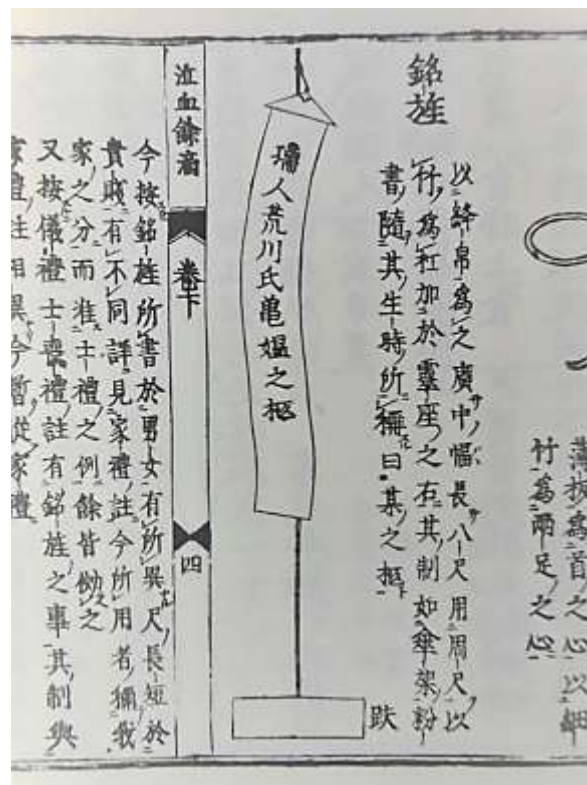 薄板為首之心以綱
竹為兩足之心
銘旌
以絳帛為之廣中幅長八尺用周尺以
竹為杠加於靈座之右其制如傘架粉
書隨其生時所稱曰某之柩
孺人荒川氏亀媼之柩
趺
泣血餘滴
卷下
四
今按銘旌所書於男女有所異尺長短於
貴賤有不同詳見家禮註今所用者獨我
家之分而准士禮之例餘皆倣之
又按儀禮士喪禮註有銘旌之事其制與
家禮註相異今暫從家禮